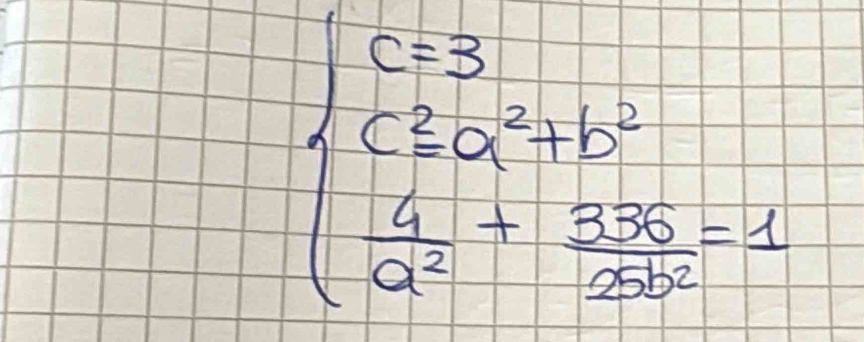 c=3
c²=a²+b²
4/a² + 336/25b² = 1